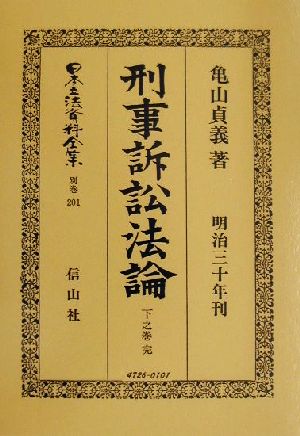 亀山貞義著
明治三十年刊
刑事訴訟法論
下之巻 完
日本立法資料全集
別巻
201
信山社
4726-0101